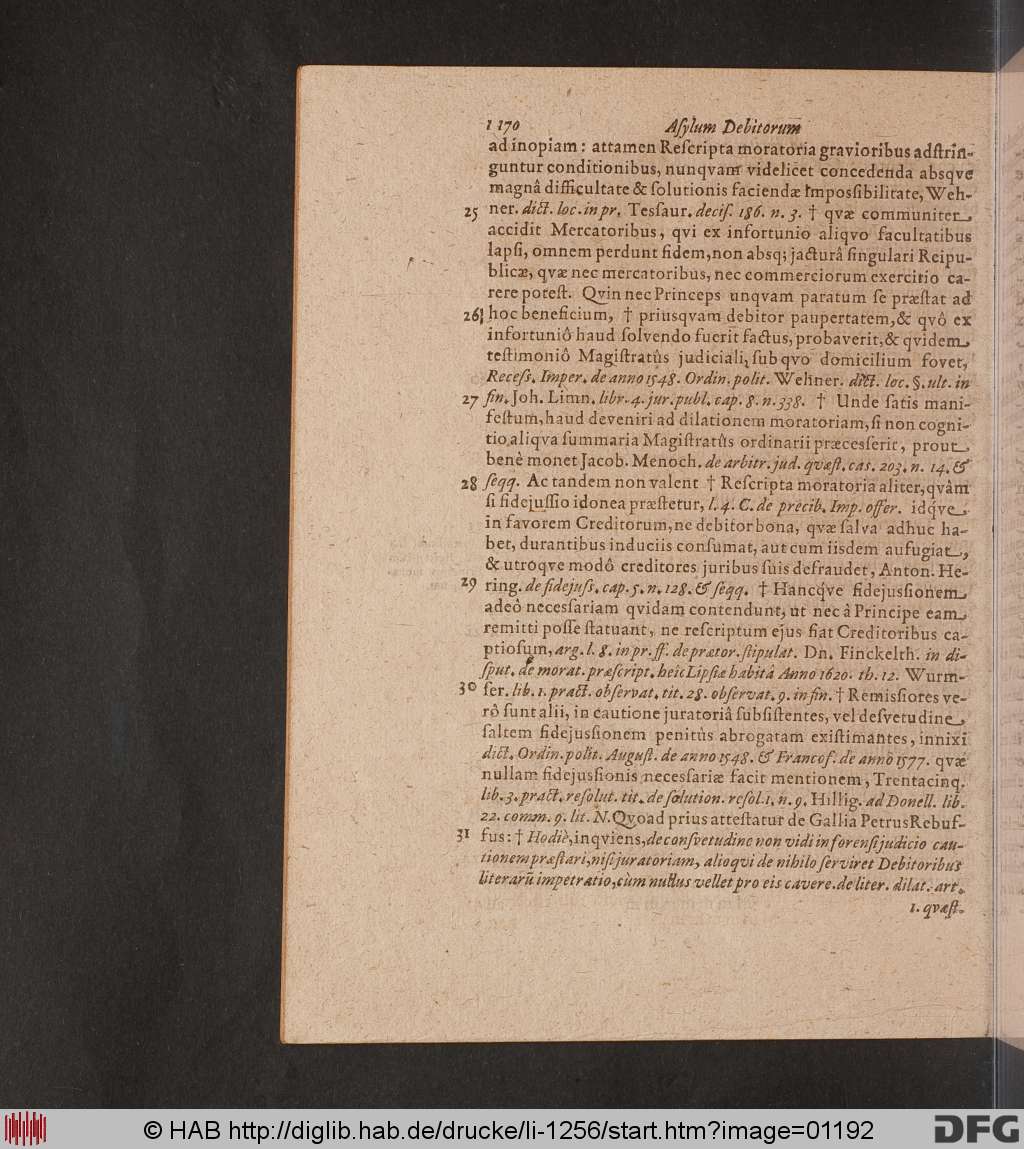 1170 Aſylum Debitorum
ad inopiam: attamen Reſcripta moratoria gravioribus adſtrin-
guntur conditionibus, nunqvam videlicet concedenda absqve
magnâ difficultate & ſolutionis faciendæ imposſibilitate, Weh-
25 ner. dict. loc. in pr. Tesſaur. deciſ. 186. n. 3. † qvæ communiter
accidit Mercatoribus, qvi ex infortunio aliqvo facultatibus
lapſi, omnem perdunt fidem, non absq; jacturâ ſingulari Reipu-
blicæ, qvæ nec mercatoribus, nec commerciorum exercitio ca-
rere poteſt. Qvin nec Princeps unqvam paratum ſe præſtat ad
26 hoc beneficium, † priusqvam debitor paupertatem, & qvô ex
infortuniô haud ſolvendo fuerit factus, probaverit, & qvidem
teſtimoniô Magiſtratûs judiciali, ſub qvo domicilium fovet,
Receſs. Imper. de anno 1548. Ordin. polit. Wehner. dict. loc. §. ult. in
27 fin. Joh. Limn. libr. 4. jur. publ. cap. 8. n. 338. † Unde ſatis mani-
feſtum, haud deveniri ad dilationem moratoriam, ſi non cogni-
tio aliqva ſummaria Magiſtratûs ordinarii præcesſerit, prout
benè monet Jacob. Menoch. de arbitr. jud. qvæſt. cas. 203. n. 14. &
28 ſeqq. Ac tandem non valent † Reſcripta moratoria aliter, qvàm
ſi fidejuſſio idonea præſtetur, l. 4. C. de precib. Imp. offer. idq́ve
in favorem Creditorum, ne debitor bona, qvæ ſalva adhuc ha-
bet, durantibus induciis conſumat, aut cum iisdem aufugiat,
& utroqve modô creditores juribus ſuis defraudet, Anton. He-
29 ring. de fidejuſs. cap. 5. n. 128. & ſeqq. † Hancq́ve fidejusſionem
adeô necesſariam qvidam contendunt, ut nec â Principe eam
remitti poſſe ſtatuant, ne reſcriptum ejus fiat Creditoribus ca-
ptioſum, arg. l. 8. in pr. ff. de prætor. ſtipulat. Dn. Finckelth. in di-
ſput. de morat. præſcript. heic Lipſiæ habitâ Anno 1620. th. 12. Wurm-
30 ſer. lib. 1. pract. obſervat. tit. 28. obſervat. 9. in fin. † Remisſiores ve-
rô ſunt alii, in cautione juratoriâ ſubſiſtentes, vel deſvetudine
ſaltem fidejusſionem penitùs abrogatam exiſtimantes, innixi
dict. Ordin. polit. Auguſt. de anno 1548. & Francof. de anno 1577. qvæ
nullam fidejusſionis necesſariæ facit mentionem, Trentacinq.
lib. 3. pract. reſolut. tit. de ſolution. reſol. 1. n. 9. Hillig. ad Donell. lib.
22. comm. 9. lit. N. Qvoad prius atteſtatur de Gallia Petrus Rebuf-
31 fus: † Hodiè, inqviens, de conſvetudine non vidi in forenſi judicio cau-
tionem præſtari, niſi juratoriam, alioqvi de nihilo ſerviret Debitoribus
literarũ impetratio, cùm nullus vellet pro eis cavere. de liter. dilat. art.
1. qvæſt.
© HAB http://diglib.hab.de/drucke/li-1256/start.htm?image=01192
DFG